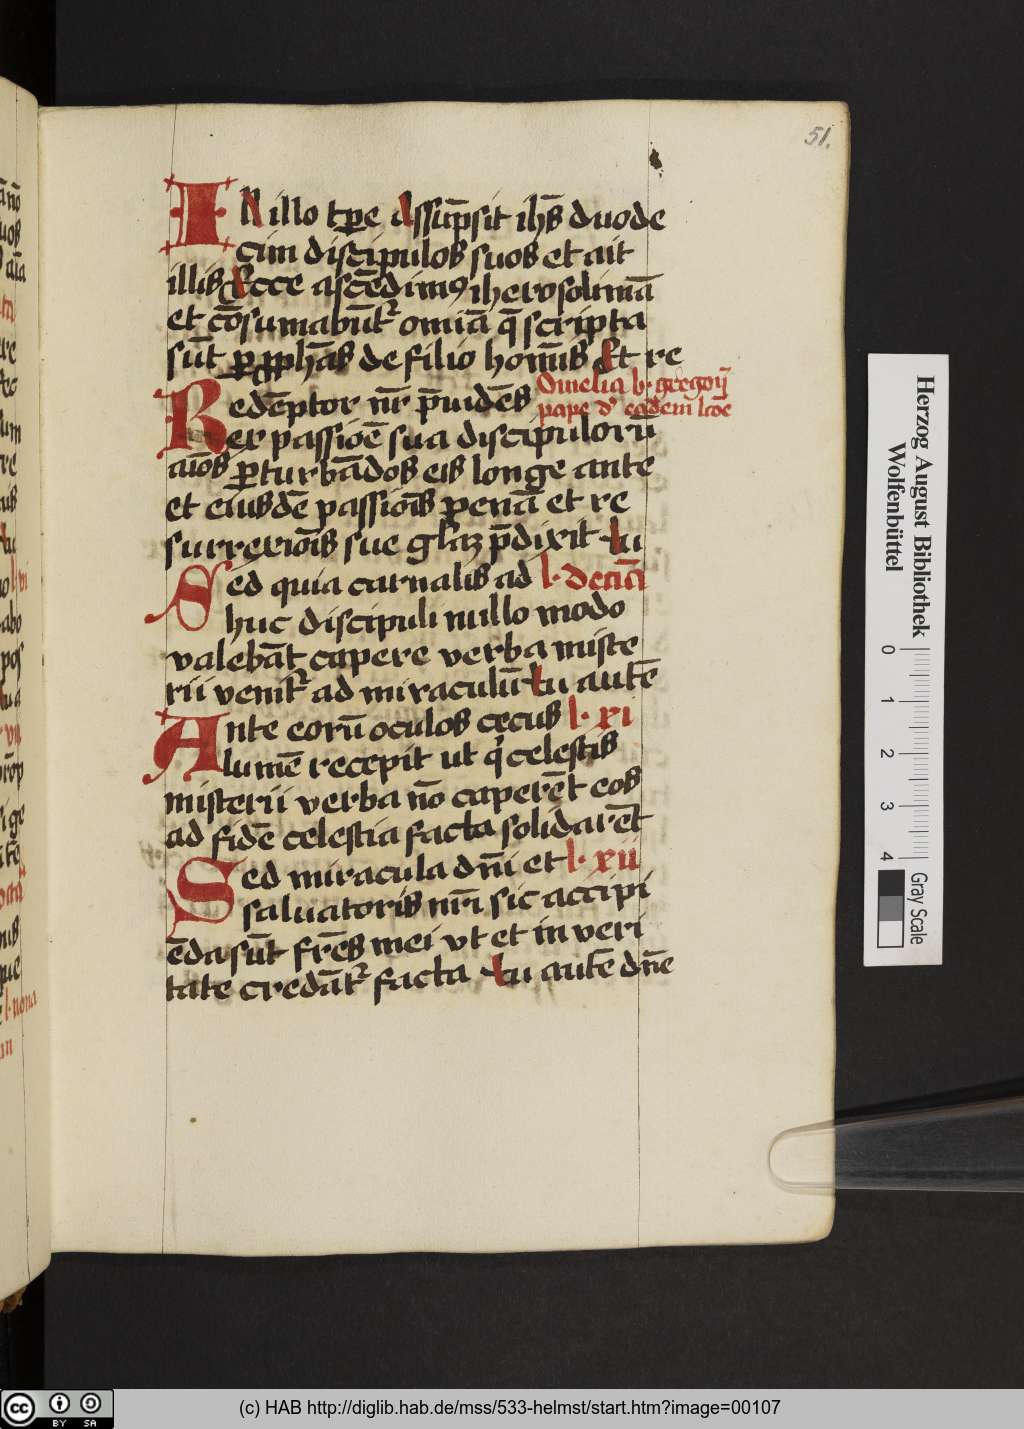 51.
IN illo tp̄e Assūpsit ihs̄ duode
cim discipulos suos et ait
illis Ecce ascēdimꝰ iherosolimā
et cōsumabūtᷣ om̄ia q̄ scripta
sūt ꝑ ꝓph̄as de filio homīs Et re
Redēptor nr̄ p̄uidēs Omelia b. gregorij
er passiōe sua discipulorū pape d' eadem lcōe
aīos ꝑturbādos eis longe ante
et eiusdē passiōis penā et re
surrexiōis sue gl̄aꝫ p̄dixit tu
Sed quia carnalis ad l. decīa
huc discipuli nullo modo
valebāt capere verba miste
rii venitᷣ ad miraculū tu autē
Ante eorū oculos cecus l. xi
lumē recepit ut q' celestis
misterii verba nō caperēt eos
ad fidē celestia facta solidarēt
Sed miracula dn̄i et l. xii
saluatoris nr̄i sic accipi
ēda sūt frēs mei vt et in veri
tate credātᷣ facta tu autē dn̄e
Herzog August Bibliothek
Wolfenbüttel
0 1 2 3 4
Gray Scale
cc BY SA
(c) HAB http://diglib.hab.de/mss/533-helmst/start.htm?image=00107